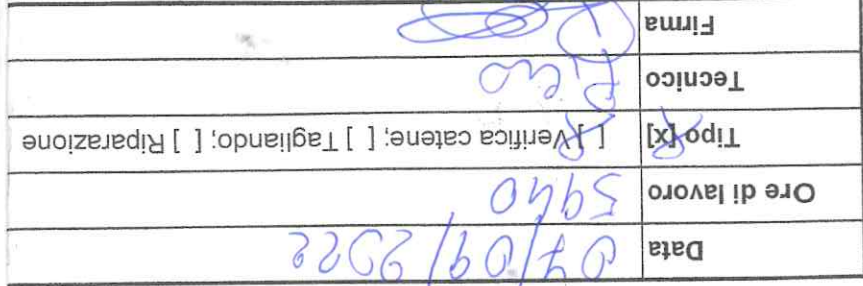 Data 07/09/2022
Ore di lavoro 5940
Tipo [x] [ ] Verifica catene; [ ] Tagliando; [ ] Riparazione
Tecnico Piero
Firma